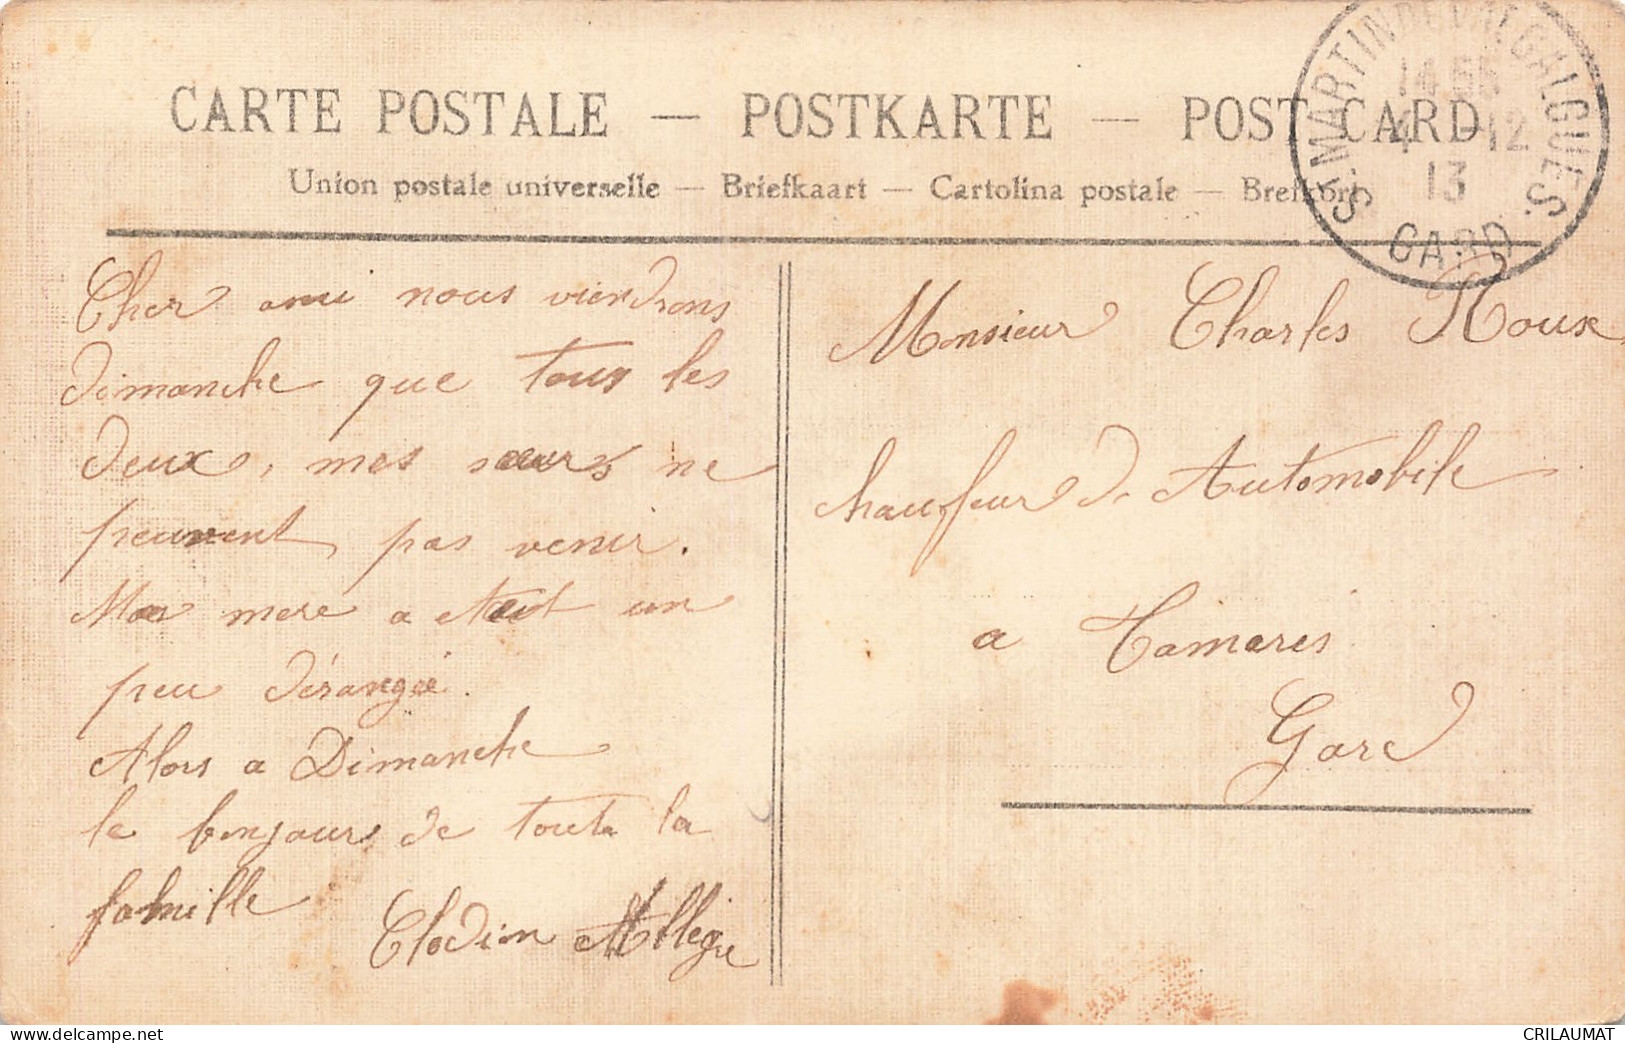 CARTE POSTALE — POSTKARTE — POST CARD
Union postale universelle — Briefkaart — Cartolina postale — Brefkort
ST MARTIN DE VALGALGUES.
14
4 -12
13
GARD
Cher ami nous viendrons
dimanche que tous les
deux, mes sœurs ne
peuvent pas venir.
Ma mere a etait un
peu dérangée.
Alors a Dimanche
le bonjours de toute la
famille
Clodion Allègre
Monsieur Charles Roux
chauffeur de Automobile
a Tamaris
Gard
www.delcampe.net
CRILAUMAT